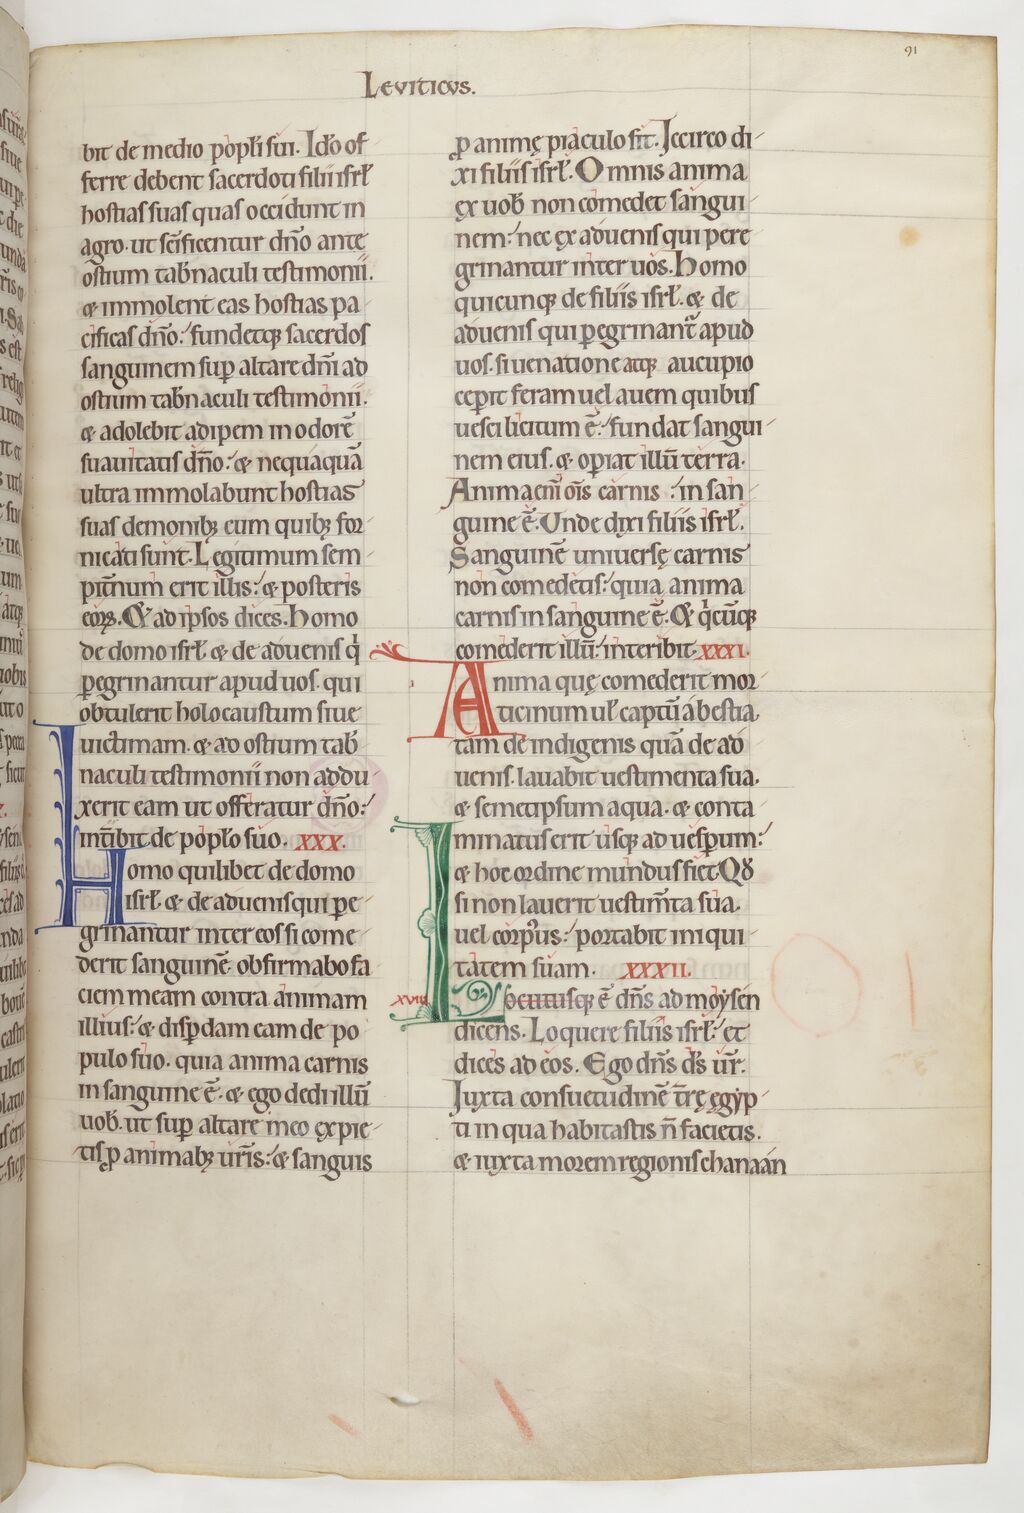 91
Leviticus.
bit de medio pop̄li sui. Idō of
ferre debent sacerdoti filii isrl̄
hostias suas quas occidunt in
agro. ut sc̄ificentur dn̄o ante
ostium tab̄naculi testimonii.
& immolent eas hostias pa
cificas dn̄o. fundetq; sacerdos
sanguinem sup̄ altare dn̄i ad
ostium tab̄naculi testimonii.
& adolebit adipem in odorē
suauitatis dn̄o. & nequaquā
ultra immolabunt hostias
suas demonib; cum quib; for
nicati sunt. Legitimum sem
pit̄num erit illis. & posteris
eoꝝ. Et ad ipsos dices. Homo
de domo isrl̄ & de aduenis q̍
ꝑegrinantur apud uos. qui
obtulerit holocaustum siue
uictimam. & ad ostium tab̄
naculi testimonii non addu
xerit eam ut offeratur dn̄o.
int̄ibit de pop̄lo suo. XXX.
Homo quilibet de domo
isrl̄. & de aduenis qui pe
grinantur inter eos si come
derit sanguinē. obfirmabo fa
ciem meam contra animam
illius. & disꝑdam eam de po
pulo suo. quia anima carnis
in sanguine ē. & ego dedi illū
uob̄. ut sup̄ altare meo expie
tis ꝓ animab; ur̄is. & sanguis
ꝓ animę piaculo sit. Iccirco di
xi filiis isrl̄. Omnis anima
ex uob̄ non comedet sangui
nem. nec ex aduenis qui pere
grinantur inter uos. Homo
quicunq; de filiis isrl̄. & de
aduenis qui ꝑegrinant᷑ apud
uos. si uenatione atq; aucupio
ceꝑit feram uel auem quibus
uesci licitum ē. fundat sangui
nem eius. & oꝑiat illū terra.
Anima eni᷑ oīs carnis in san
guine ē. Unde dixi filiis isrl̄.
Sanguinē uniuersę carnis
non comedetis. quia anima
carnis in sanguine ē. Et q̍cūq;
comederit illū. interibit. XXXI.
Anima quę comederit mor
ticinum ul̄ captū a bestia.
tam de indigenis quā de ad
uenis. lauabit uestimenta sua.
& semetipsum aqua. & conta
minatus erit usq; ad uesꝑum.
& hoc ordine mundus fiet. Qd̄
si non lauerit uestim̄ta sua.
uel corpus. portabit iniqui
tatem suam. XXXII.
XVIII Locutusq; ē dn̄s ad moysen
dicens. Loquere filiis isrl̄. et
dices ad eos. Ego dn̄s d̄s ur̄.
Iuxta consuetudinē t̄rę egyp
ti in qua habitastis n̄ facietis.
& iuxta morem regionis chanaan